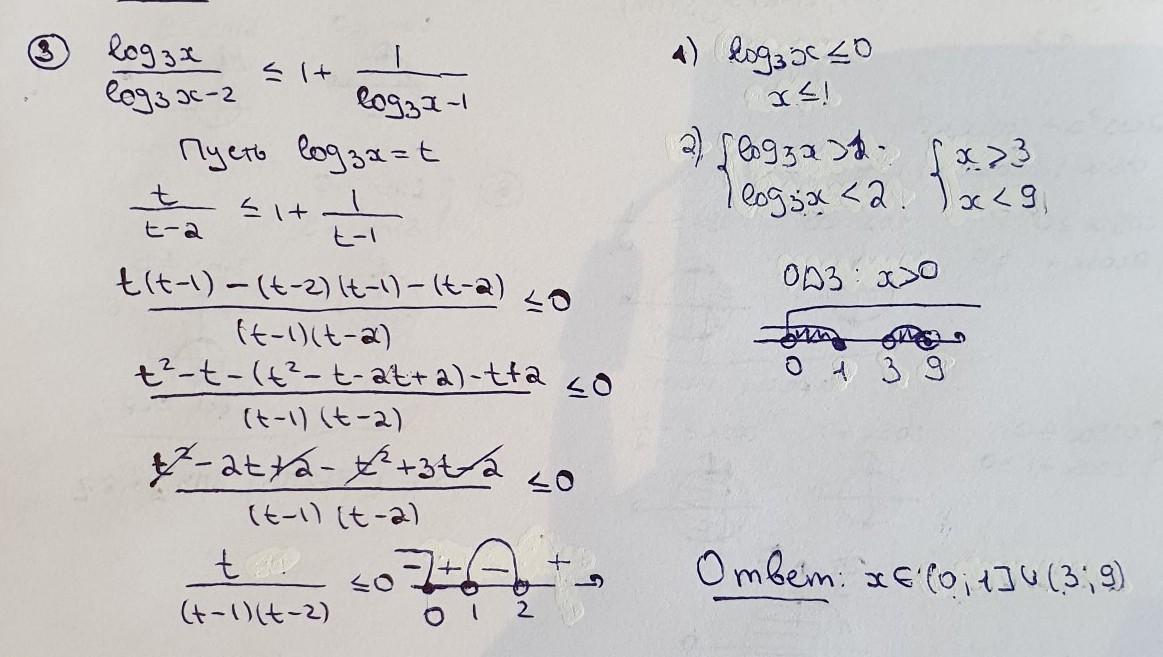 ③ log₃x / (log₃x-2) ≤ 1 + 1 / (log₃x-1)
Пусть log₃x = t
t / (t-2) ≤ 1 + 1 / (t-1)
(t(t-1) - (t-2)(t-1) - (t-2)) / ((t-1)(t-2)) ≤ 0
(t² - t - (t² - t - 2t + 2) - t + 2) / ((t-1)(t-2)) ≤ 0
(t² - 2t + 2 - t² + 3t - 2) / ((t-1)(t-2)) ≤ 0
t / ((t-1)(t-2)) ≤ 0
- + - +
0 1 2
1) log₃x ≤ 0
x ≤ 1
2) { log₃x > 1 { x > 3
{ log₃x < 2 { x < 9
ОДЗ: x > 0
0 1 3 9
Ответ: x ∈ (0; 1] ∪ (3; 9)